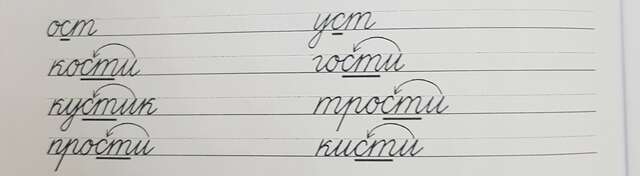 ост уст
кости гости
кустик трости
прости кисти